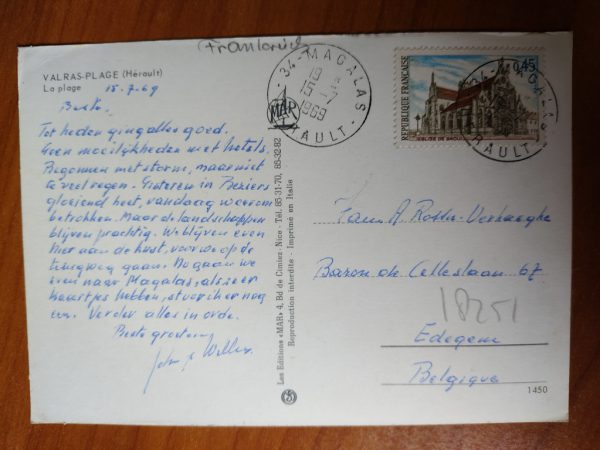 Frankrijk
VALRAS-PLAGE (Hérault)
La plage
15-7-69
Beste,
Tot heden ging alles goed.
Geen moeilijkheden met hotels.
Begonnen met storm, maar niet
te veel regen. Gisteren in Beziers
gloeiend heet, vandaag weerom
betrokken. Maar de landschappen
blijven prachtig. We blijven even
hier aan de kust, voor we op de
terugweg gaan. Nu gaan we
even naar Magalas, als ze er
kaartjes hebben, stuur ik er nog
een. Verder alles in orde.
Beste groeten
Les Editions «MAR» 4, Bd de Cimiez, Nice - Tél. 85-31-70, 85-32-82
Reproduction interdite - Imprimé en Italie
MAR
34-MAGALAS
15-7
1969
HÉRAULT
REPUBLIQUE FRANÇAISE
0,45
EGLISE DE BROU
Fam. A. Roster-Verhaeghe
Baron de Celleslaan 67
18251
Edegem
Belgique
1450